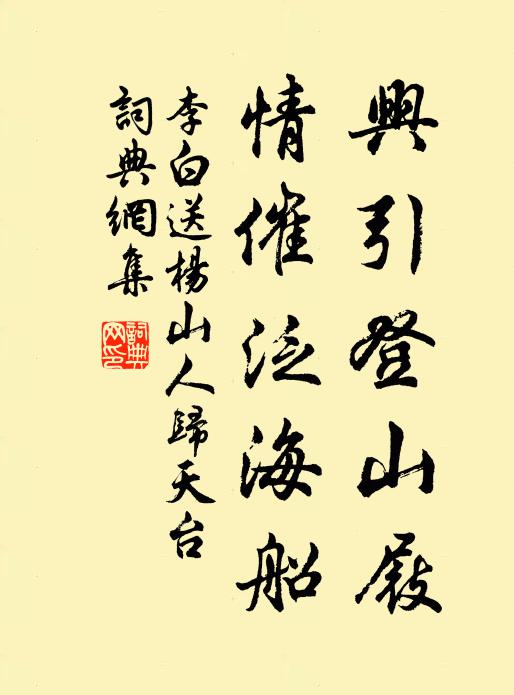 興引登山屐
情催泛海船
李白送楊山人歸天台
詞典網集
詞典網印